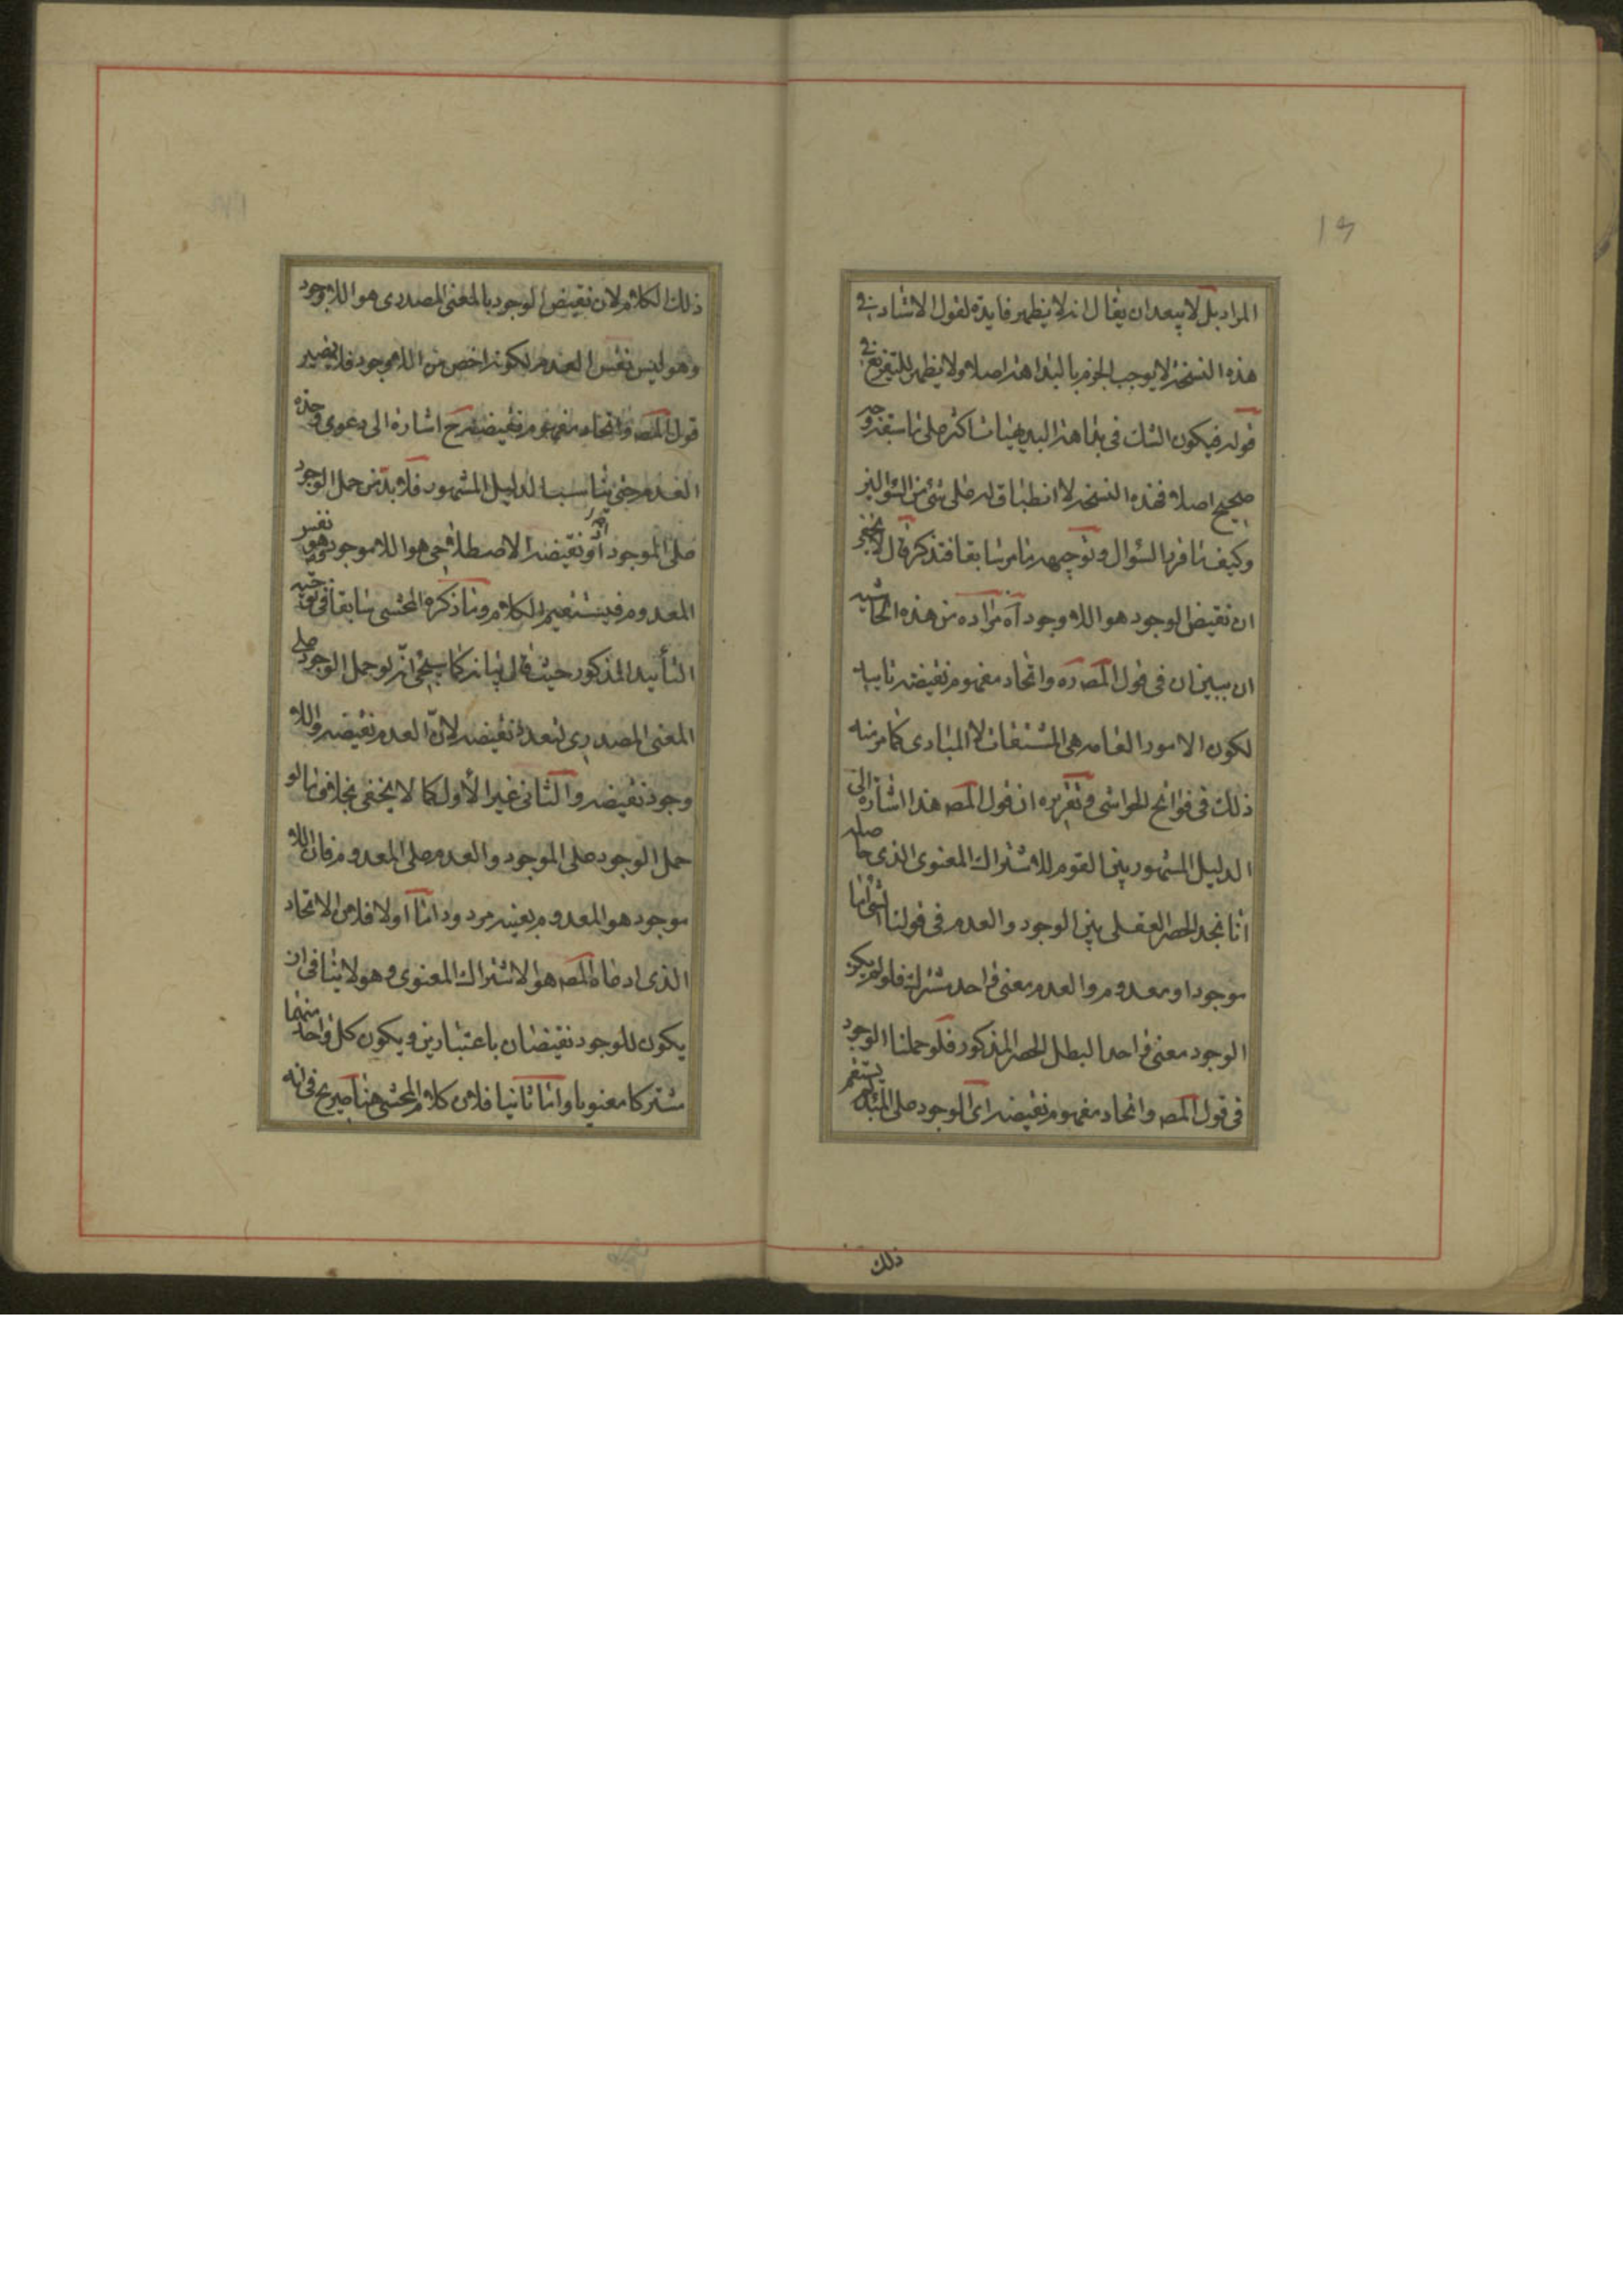 المراد بل لا يبعد ان يقال انه لا يظهر فايدة لقول الاستاد في
هذه النسخة لا يوجب الجزم بالبداهة اصلا ولا يظهر للتفريع في
قوله فيكون الشك في بقا هذه اكثر على ما سبق وجه
صحيح اصلا فهذه النسخة لا انطباق له على شئ من السؤالين
وكيف ما قرر السؤال وتوجيهه ما مر سابقا فتذكر قال لا يخفى
ان نقيض الوجود هو اللاوجود آه مراده من هذه الحاشية
ان يبين ان في قول المص ره واتحاد مفهوم نقيضه
لكون الامور العامه هي المشتقات لا المبادى كما مر منه
ذلك في فواتح الحواشى وتقريره ان قول المص هذا اشارة الى
الدليل المشهور بين القوم للاشتراك المعنوى الذى حاصله
انا نجد الحصر العقلى بين الوجود والعدم في قولنا الشئ اما
موجود او معدوم والعدم معنى واحد مشترك فلو لم يكن
الوجود معنى واحدا لبطل الحصر المذكور فلو حملنا الوجود
في قول المص واتحاد مفهوم نقيضه اى الوجود على المبدا لم يستقم
ذلك
ذلك الكلام لان نقيض الوجود بالمعنى المصدرى هو اللاوجود
وهو ليس نفس العدم لكونه اخص من اللاموجود فلا يصير
قول المص واتحاد مفهوم نقيضه ح اشارة الى دعوى وحدة
العدم حتى يناسب الدليل المشهور فلا بد من حمل الوجود
على الموجود اذ نقيضه الاصطلاحى هو اللاموجود وهو نفس
المعدوم فيستقيم الكلام وما ذكره المحشى سابقا في توجيه
التأييد المذكور حيث قال بيانه كما سيجئ انه لو حمل الوجود على
المعنى المصدرى لتعدد نقيضه لان العدم نقيضه واللا
وجود نقيضه والثانى غير الاول كما لا يخفى بخلاف ما لو
حمل الوجود على الموجود والعدم على المعدوم فان اللا
موجود هو المعدوم بعينه مردود اما اولا فلان الاتحاد
الذى ادعاه المص هو الاشتراك المعنوى وهو لا ينافى ان
يكون للوجود نقيضان باعتبارين ويكون كل واحد منهما
مشتركا معنويا واما ثانيا فلان كلام المحشى هنا صريح في انه